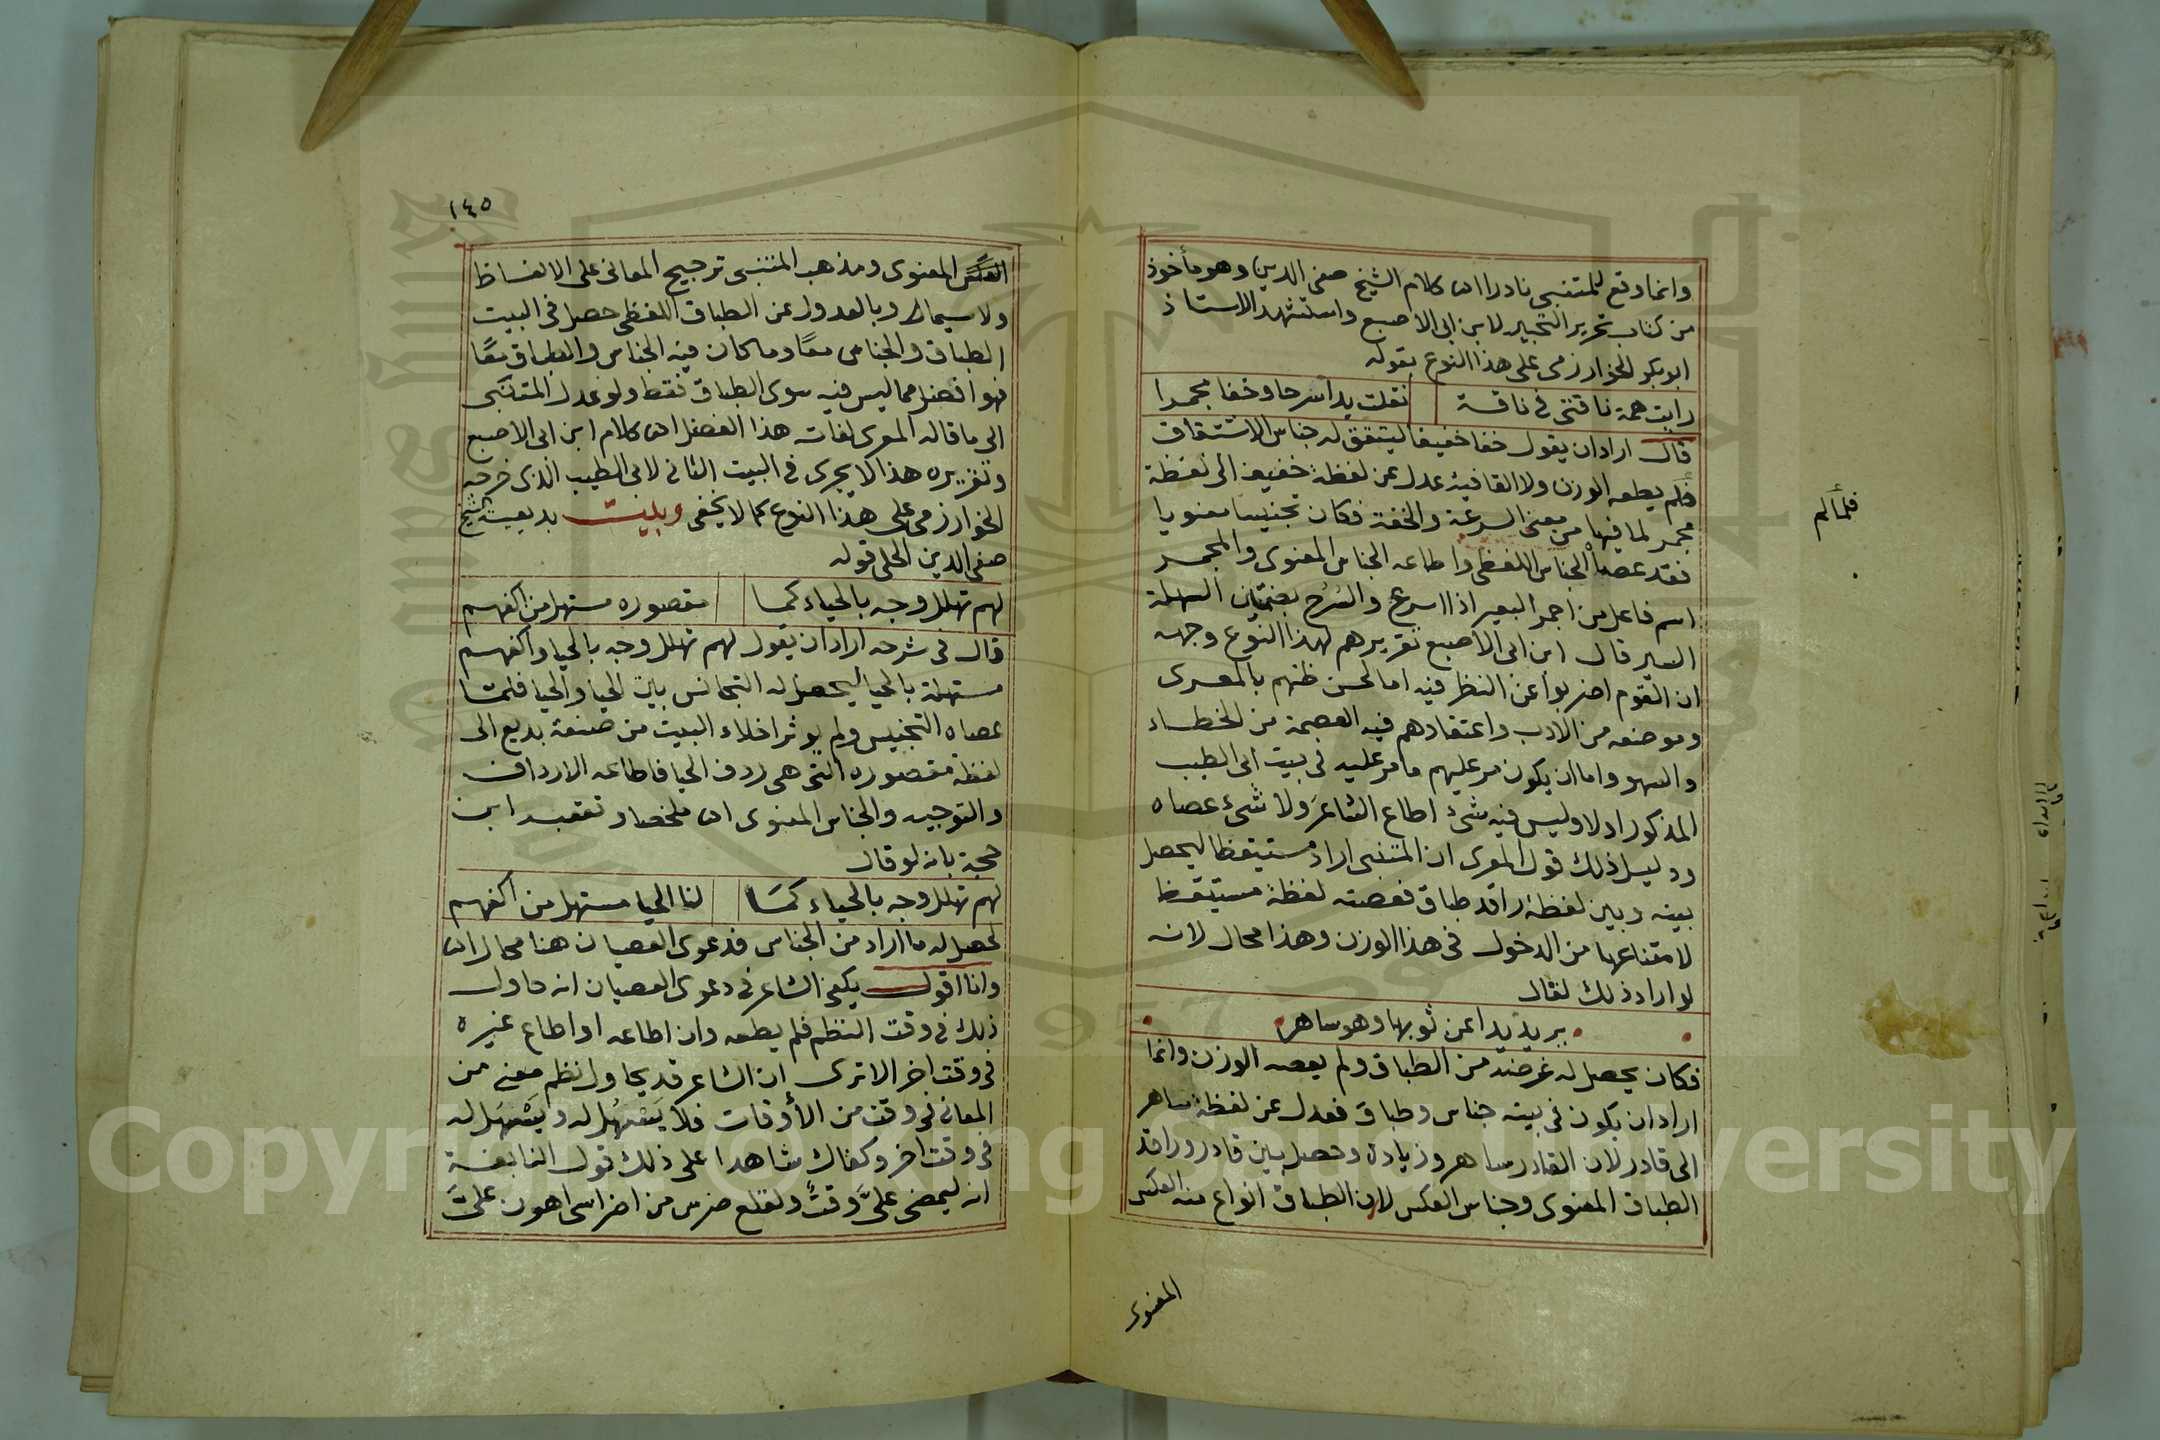 وانما وقع للمتنبى نادرا اه كلام الشيخ صفى الدين وهو مأخوذ
من كتاب تحرير التحبير لابن ابى الاصبع واستشهد الاستاذ
ابوبكر الخوارزمى على هذا النوع بقوله
رايت همة ناقتى فى ناقة نقلت يدا سرحا وخفا مجمرا
قال اراد ان يقول خفا خفيفا ليتفق له جناس الاشتقاق
فلم يطعه الوزن ولا القافية عدل عن لفظة خفيف الى لفظة
مجمر لما فيها من معنى السرعة والخفة فكان تجنيسا معنويا
فقد عصاه الجناس اللفظى واطاعه الجناس المعنوى والمجمر
اسم فاعل من اجمر البعير اذا اسرع والسُرُح بضمتين السهلة
السير قال ابن ابى الاصبع تقريرهم لهذا النوع وجهه
ان القوم اضربوا عن النظر فيه اما لحسن ظنهم بالمعرى
وموضعه من الادب واعتقادهم فيه العصمة من الخطاء
والسهو واما ان يكون مر عليهم ما مر عليه فى بيت ابى الطيب
المذكور اولا وليس فيه شئ اطاع الشاعر ولا شئ عصاه
ودليل ذلك قول المعرى ان المتنبى اراد مستيقظا ليحصل
بينه وبين لفظة راقد طباق فعصته لفظة مستيقظ
لامتناعها من الدخول فى هذا الوزن وهذا محال لانه
لو اراد ذلك لقال
يريد يدا عن ثوبها وهو ساهر
فكان يحصل له غرضه من الطباق ولم يعصه الوزن وانما
اراد ان يكون فى بيته جناس وطباق فعدل عن لفظة ساهر
الى قادر لان القادر ساهر وزيادة وحصل بين قادر وراقد
الطباق المعنوى وجناس العكس لان الطباق انواع منه العكس
المعنوى
فلما لم
١٤٥
العكس المعنوى ومذهب المتنبى ترجيح المعانى على الالفاظ
ولا سيما وبالعدول عن الطباق اللفظى حصل فى البيت
الطباق والجناس معًا وما كان فيه الجناس والطباق معًا
فهو افضل مما ليس فيه سوى الطباق فقط ولو عدل المتنبى
الى ما قاله المعرى لفات هذا الفضل اه كلام ابن ابى الاصبع
وتقريره هذا لا يجرى فى البيت الثانى لابى الطيب الذى خرجه
الخوارزمى على هذا النوع كما لا يخفى وبيت بديعية الشيخ
صفى الدين الحلى قوله
لهم تهلل وجه بالحياء كما مقصوره مستهل من اكفهم
قال فى شرحه اراد ان يقول لهم تهلل وجه بالحيا واكفهم
مستهلة بالحيا ليحصل له التجانس بين الحيا والحيا فلما
عصاه التجنيس ولم يوثر اخلاء البيت من صنعة بديع الى
لفظة مقصوره التى هى ردف الحيا فاطاعه الارداف
والتوجيه والجناس المعنوى اه ملخصا وتعقبه ابن
حجة بانه لو قال
لهم تهلل وجه بالحياء كمَا لنا الحيا مستهل من اكفهم
لحصل له ما اراد من الجناس فدعوى العصيان هنا محال اه
وانا اقول يكفى الشاعر فى دعوى العصيان انه حاول
ذلك فى وقت النظم فلم يطعه وان اطاعه او اطاع غيره
فى وقت اخر الا ترى ان الشاعر قد يحاول نظم معنى من
المعانى فى وقت من الأوقات فلا يَسْهُل له ويَسْهَل له
فى وقت اخر وكفاك شاهدا على ذلك قول النابغة
انه ليمضى علىَّ وقتٌ ولقلع ضرس من اضراسى اهون علىَّ
Copyright © King Saud University
1957